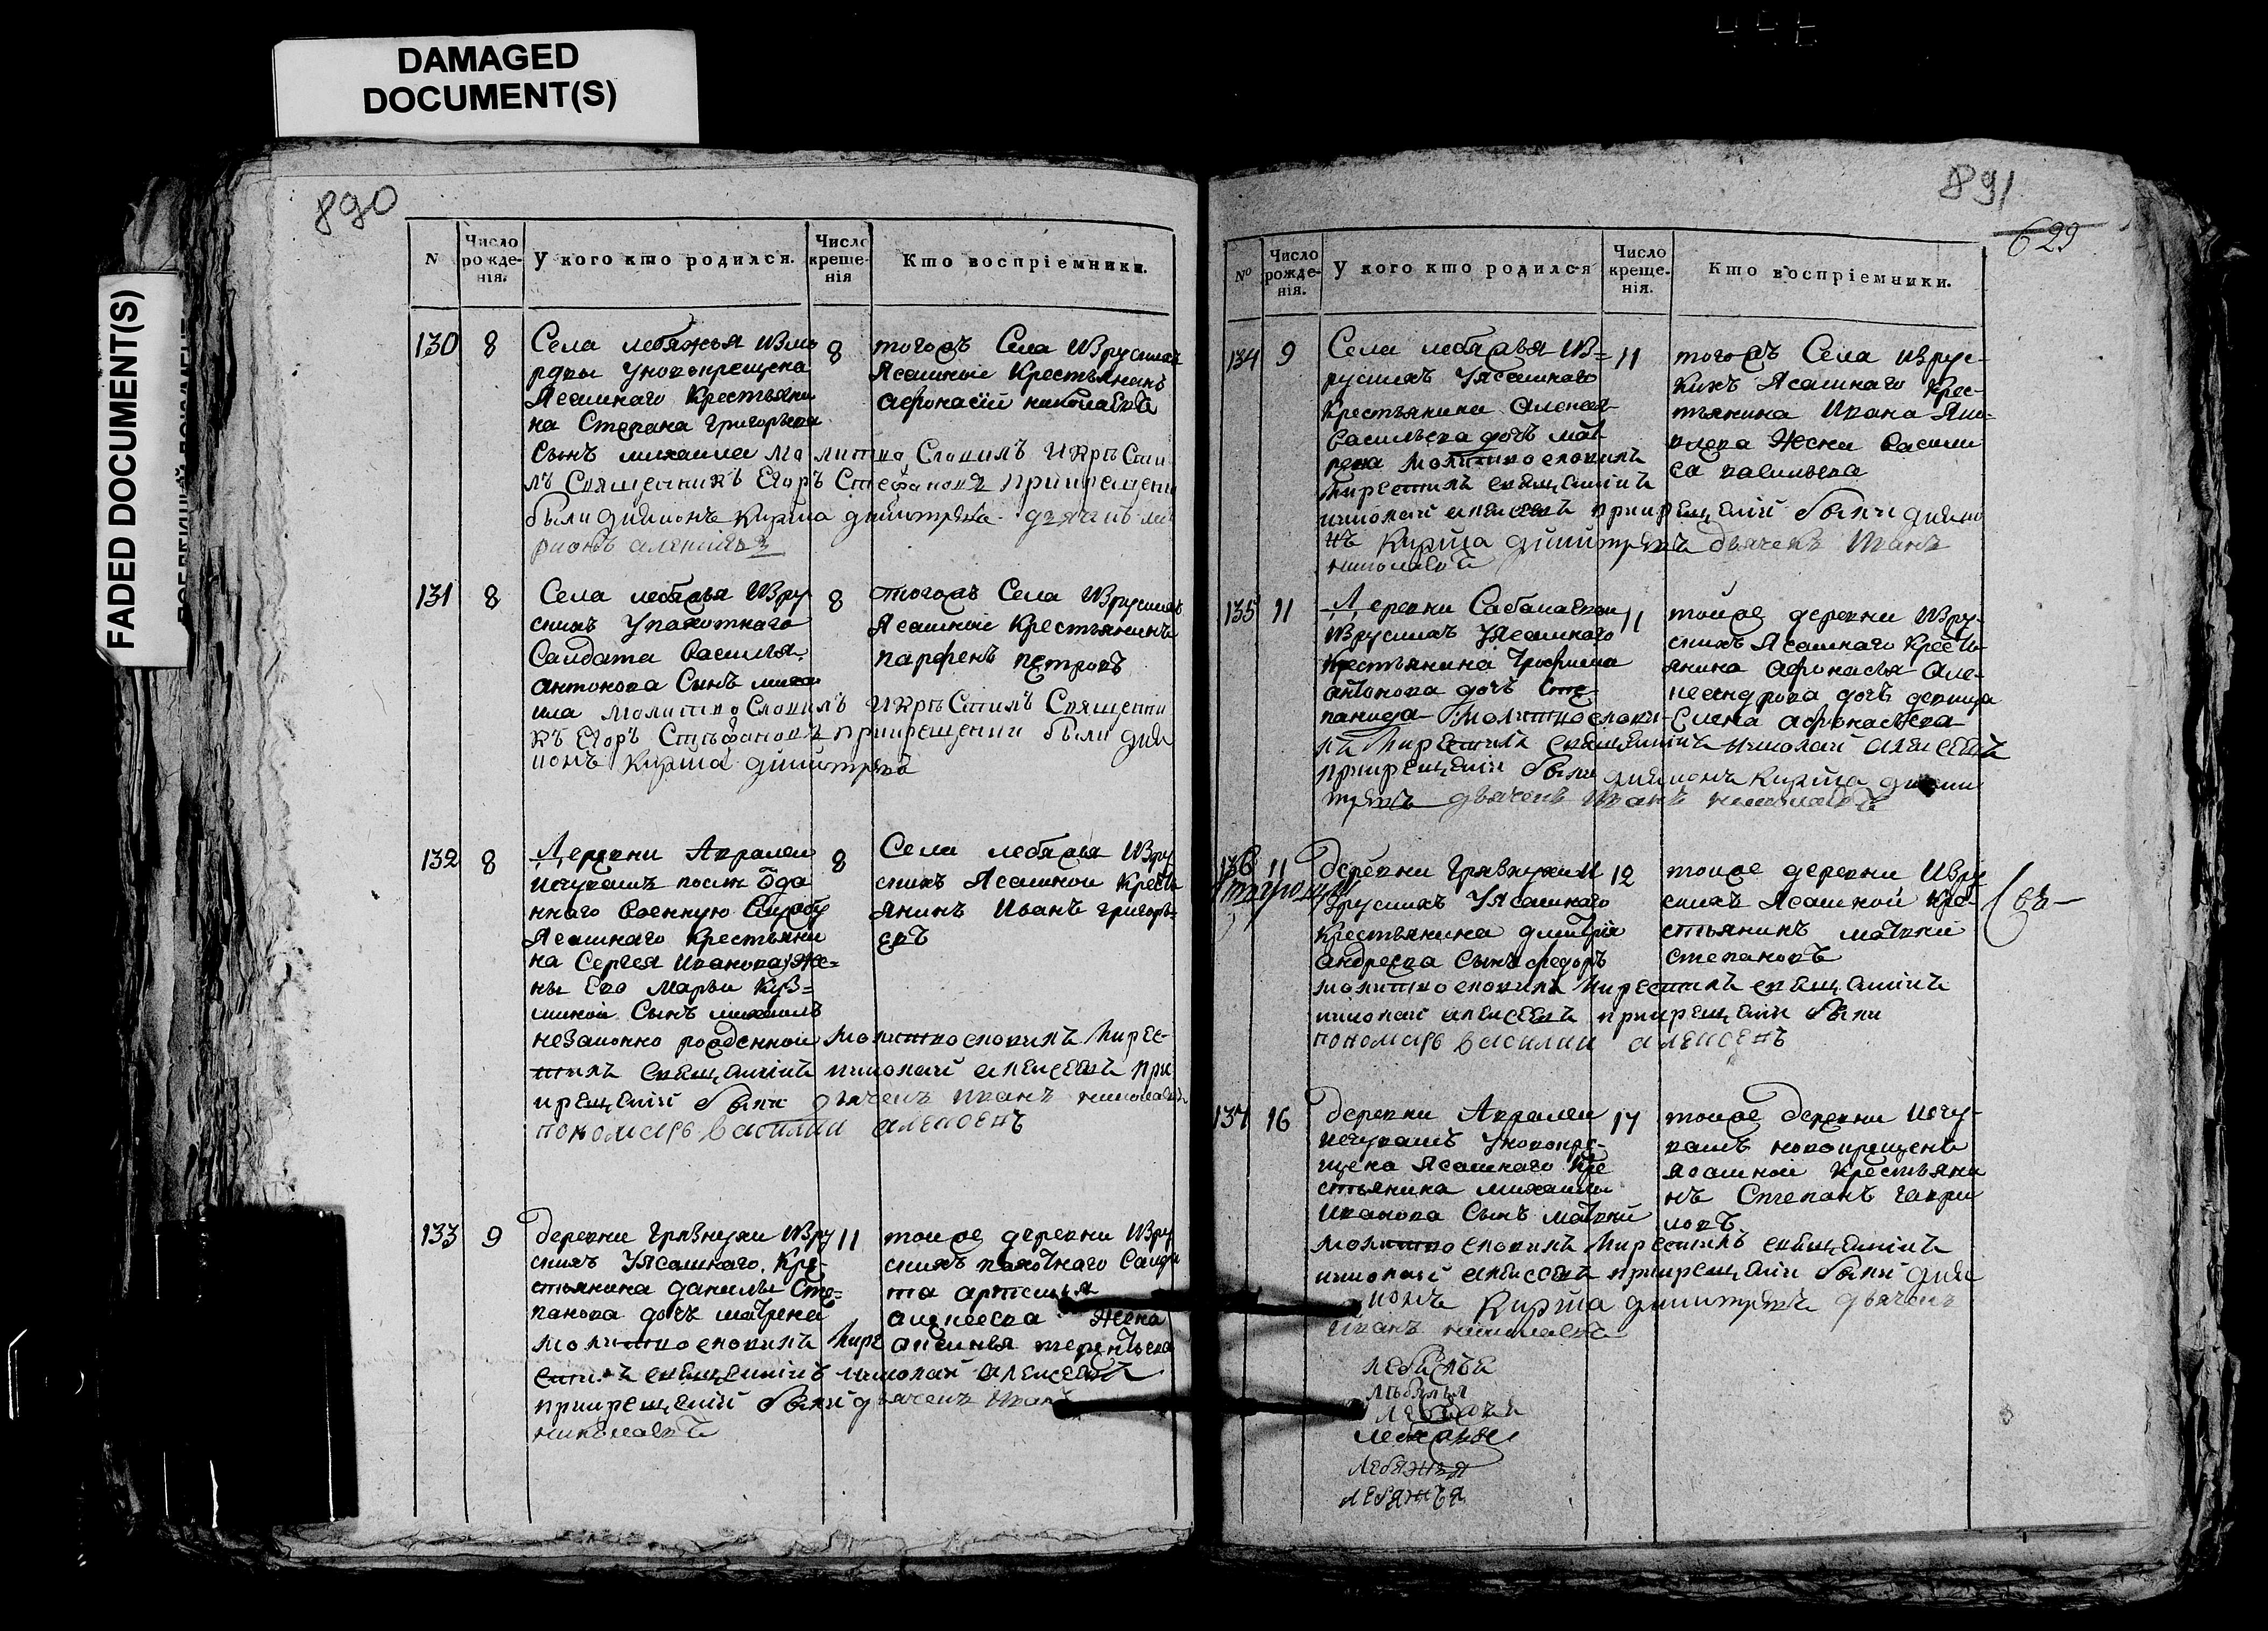 DAMAGED
DOCUMENT(S)
FADED DOCUMENT(S)
890
N
Число рожденія.
У кого кто родился.
Число крещенія
Кто воспріемники.
130 8
Села лебяжья Изъ мо
рдвы у новокрещена
Ясашнаго Крестьяни
на Стефана григорьева
Сынъ михаила молитво Словилъ И Крѣсти
лъ Священникъ Егоръ Стефановъ прикрещени
были диаконъ Кирила димитревъ дьячекъ
8
тогожъ Села Изрускихъ
Ясашные Крестьянинъ
афонасій николаевъ
131 8
Села лебяжья Изру
скихъ у пахотнаго
Салдата Василья
антонова Сынъ миха
ила молитво Словилъ И Крѣстилъ Священни
къ Егоръ Стефановъ прикрещении были диа
конъ Кирила димитревъ
8
тогожъ Села Изрускихъ
Ясашной Крестьянинъ
парфенъ петровъ
132 8
Деревни Авралеи
Ясашнаго Крестьяни
на Сергея Иванова Же=
ны Его Марьи Куз=
миной Сынъ михаилъ
незаконно рожденной молитвословилъ Икрес-
тилъ священникъ николай алексеевъ при
крещеніи были дьячекъ иванъ николаевъ
пономарь василии алексеевъ
8
Села лебяжья Изру
скихъ Ясашной Кресть
янинъ Иванъ григорь=
евъ
133 9
деревни грязнухи Изру
скихъ У Ясашнаго Кре-
стьянина данилы Сте=
панова дочь матрена
молитвословилъ Икре
стилъ священникъ николай алексеевъ
прикрещеніи были дьячекъ Иванъ
николаевъ
11
тойже деревни Изру
скихъ пахотнаго Салда
та
алексеева Жена
аксинья терентьева
891
629
№
Число рожденія.
У кого кто родился
Число крещенія.
Кто воспріемники.
134 9
Села лебяжья Из=
рускихъ У Ясашнаго
Крестьянина алексея
Васильева дочь мат
рена молитвословилъ
Икрестилъ священникъ
николай алексеевъ прикрещеніи были диако
нъ Кирила димитревъ дьячекъ Иванъ
николаевъ
11
тогожъ Села Изрус-
кихъ Ясашнаго Крес-
тьянина Ивана Яко-
влева Жена Васили
са васильева
135 11
Деревни Сабакаевки
Изрускихъ У Ясашнаго
Крестьянина Трофима
антонова дочь Сте-
панида молитвослови-
лъ Икрестилъ священникъ николай алексеевъ
прикрещеніи были диаконъ Кирила дими
тревъ дьячекъ Иванъ николаевъ
11
тойже деревни Изру-
скихъ Ясашнаго Кресть-
янина афонасья але-
ксандрова дочь девица
Елена афонасьева
136 11
деревни грязнухи И
зрускихъ У Ясашнаго
Крестьянина дмитрія
андреева Сынъ федоръ
молитвословилъ Икрестилъ священникъ
николай алексеевъ прикрещеніи были
пономарь василии алексеевъ
12
тойже деревни Изру
скихъ Ясашной Кре-
стьянинъ матвей
степановъ
137 16
деревни Авралеи
Исчувашъ У новокре-
щена Ясашнаго Кре
стьянина михаила
Иванова Сынъ матвей
молитвословилъ Икрестилъ священникъ
николай алексеевъ прикрещеніи были диа
конъ Кирила димитревъ дьячекъ
Иванъ николаевъ
17
тойже деревни Исчу-
вашъ новокрещенъ
ясашной Крестьяни
нъ Степанъ гаври
ловъ
лебяжья
лебяжья
лебяжья